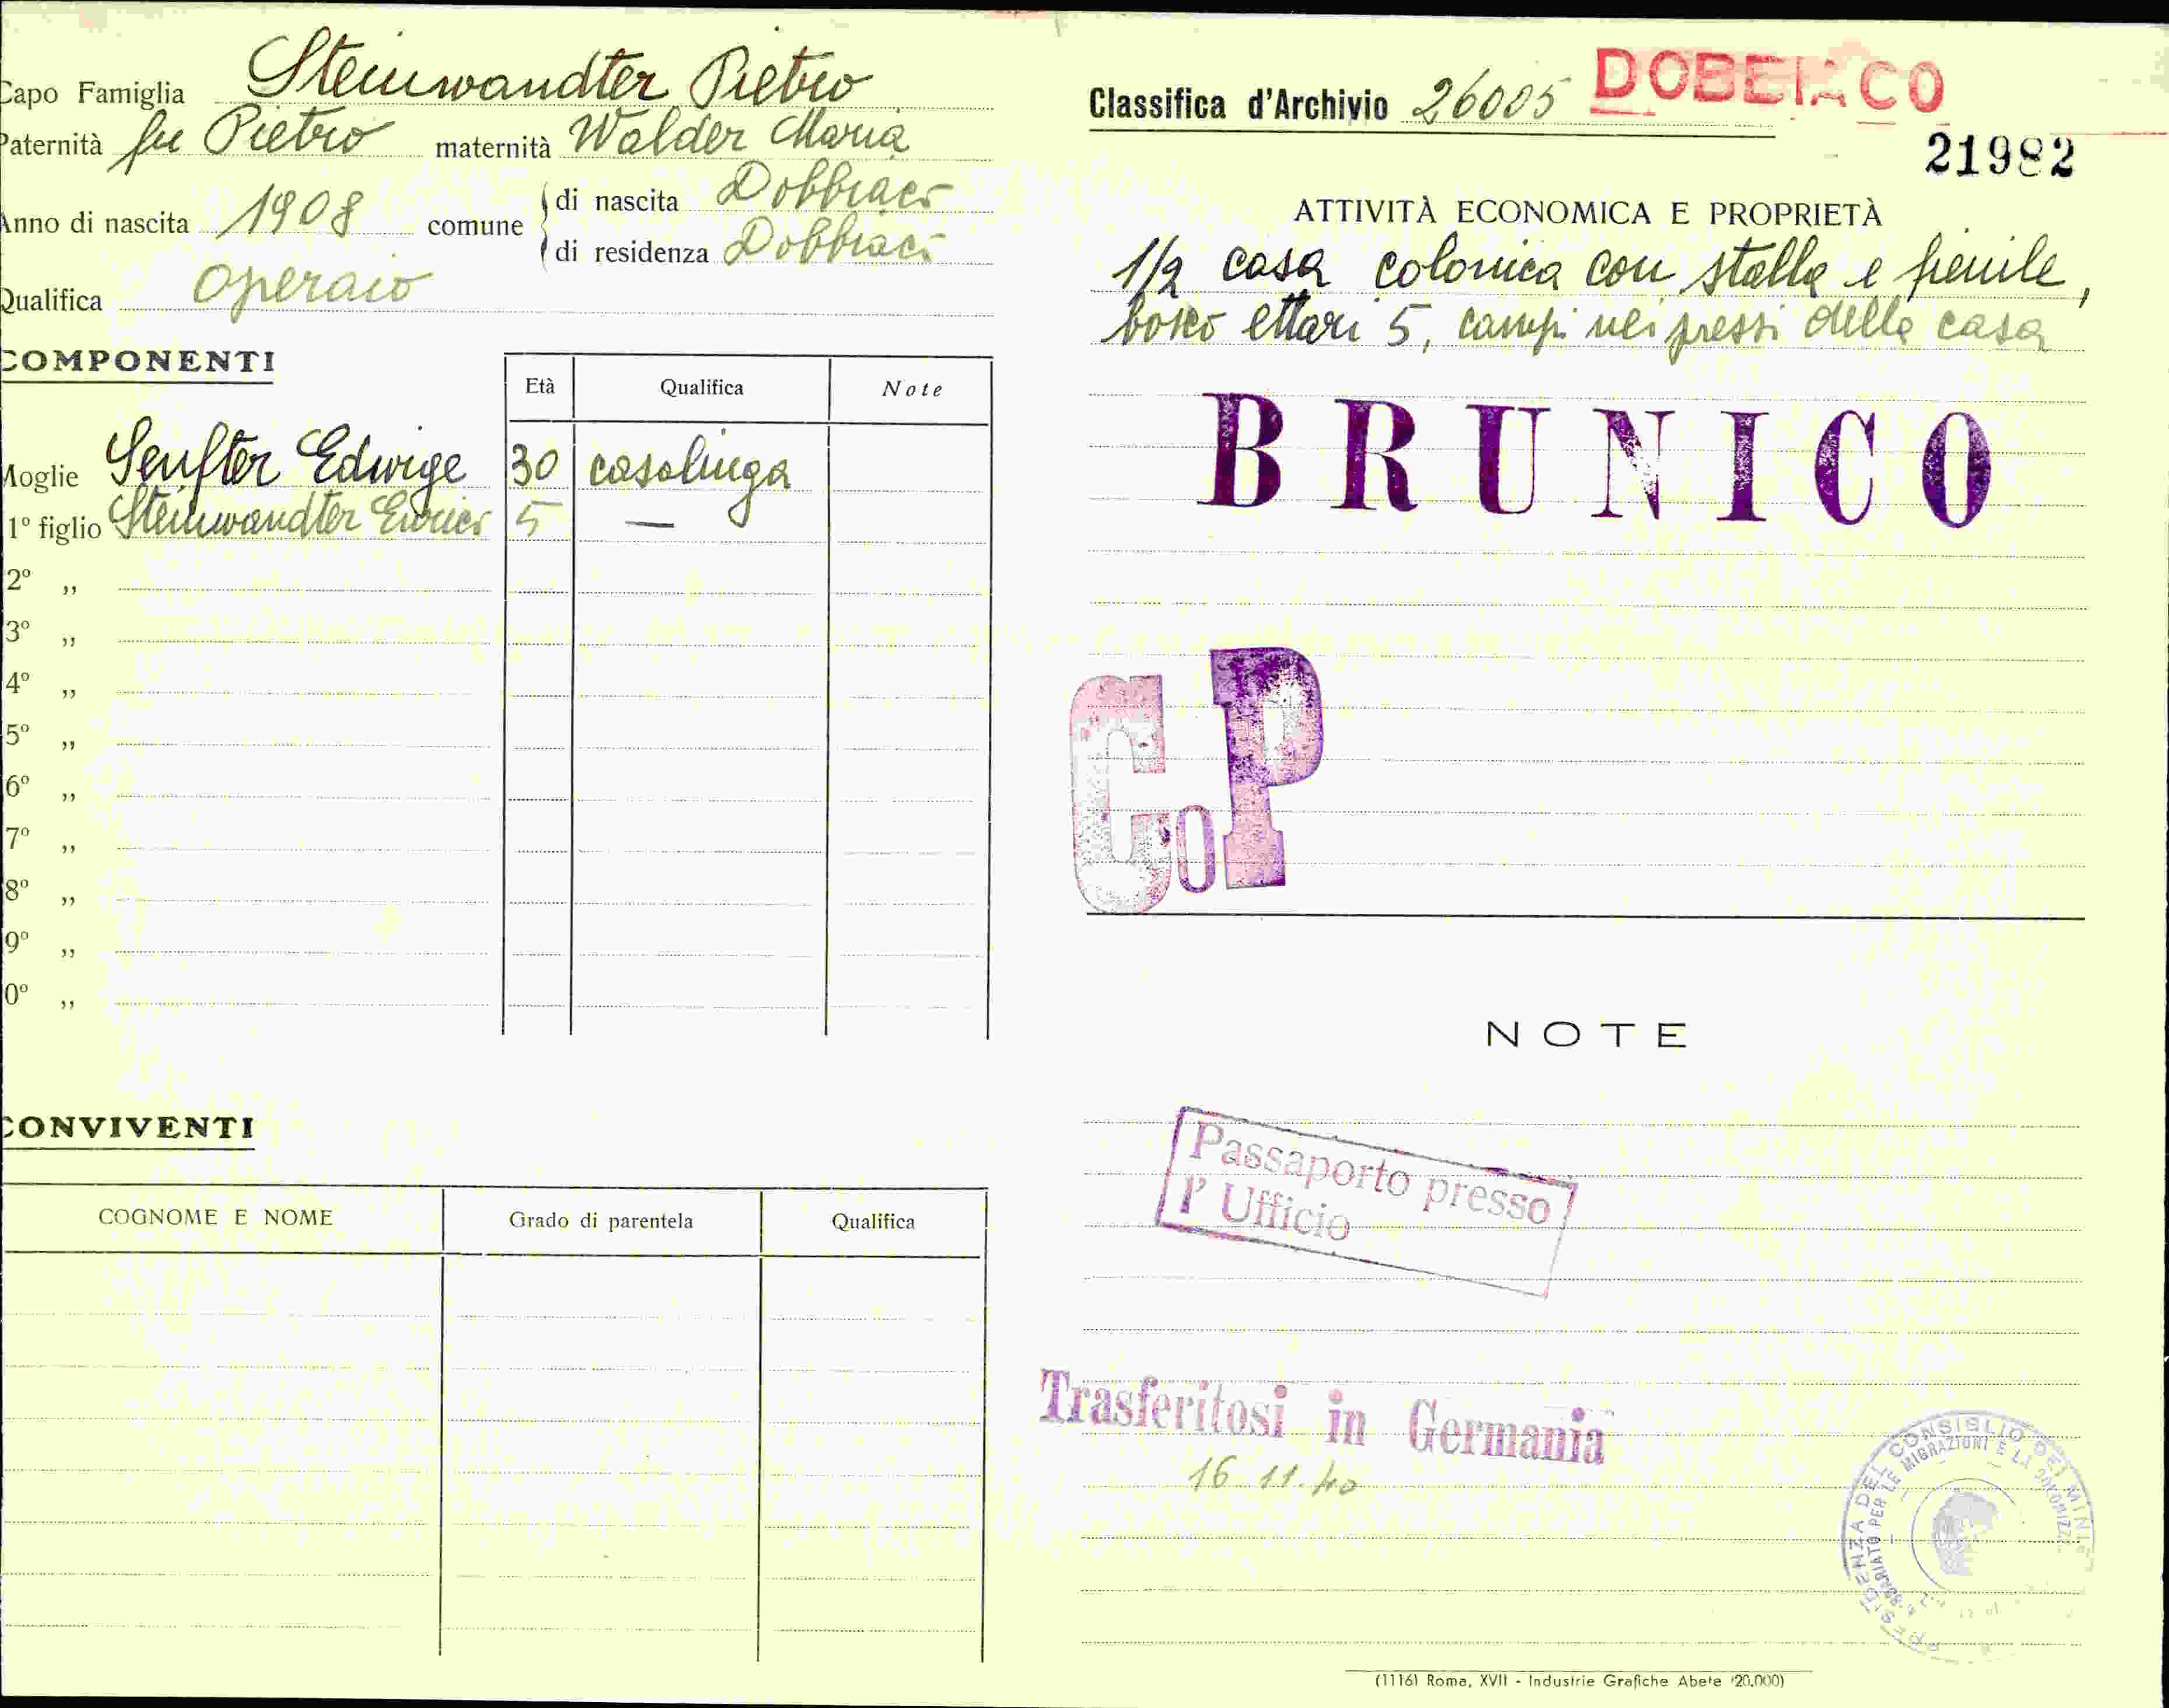 Capo Famiglia Steinwandter Pietro
Paternità fu Pietro maternità Walder Maria
Anno di nascita 1908 comune di nascita Dobbiaco
di residenza Dobbiaco
Qualifica operaio
COMPONENTI
Età Qualifica Note
Moglie Senfter Edwige 30 casalinga
1º figlio Steinwandter Enrico 5 —
2º „
3º „
4º „
5º „
6º „
7º „
8º „
9º „
0º „
CONVIVENTI
COGNOME E NOME Grado di parentela Qualifica
Classifica d'Archivio 26005 DOBBIACO
21982
ATTIVITÀ ECONOMICA E PROPRIETÀ
1/2 casa colonica con stalla e fienile,
bosco ettari 5, campi nei pressi della casa
BRUNICO
CoP
NOTE
Passaporto presso
l' Ufficio
Trasferitosi in Germania
16.11.40
CONSIGLIO DEI MINI
MIGRAZIONI E LA
(1116) Roma, XVII - Industrie Grafiche Abete (20.000)